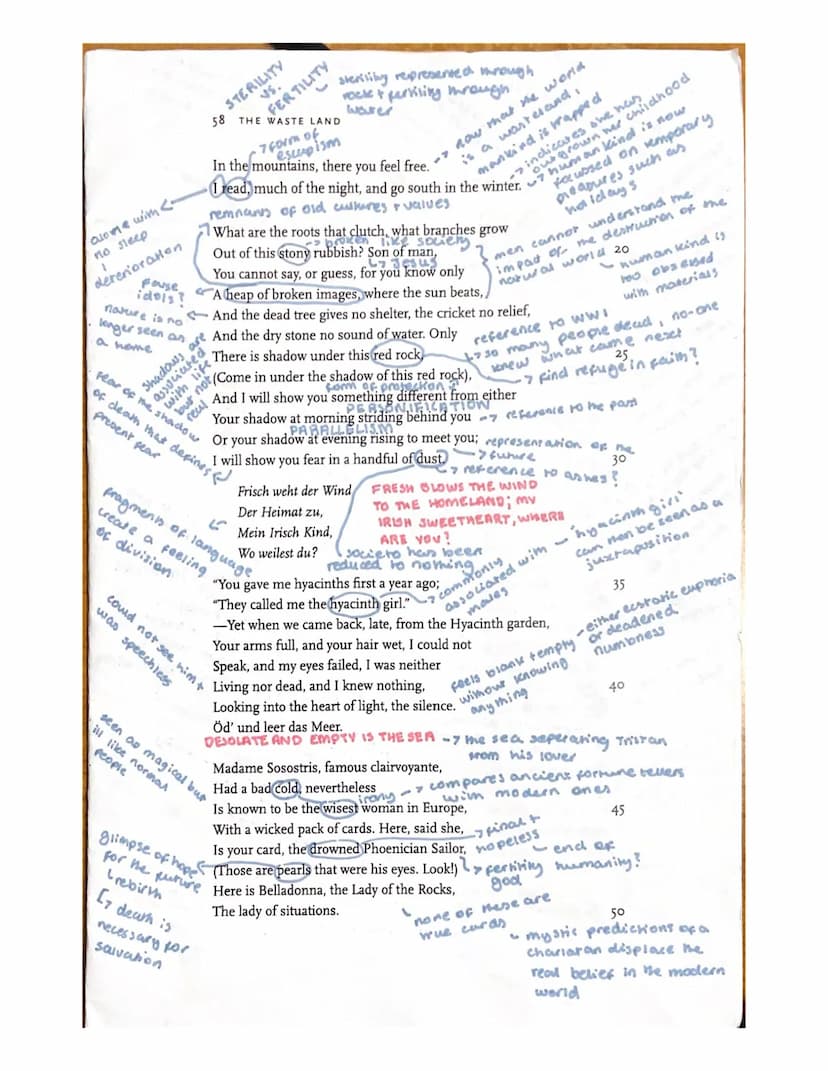 STERILITY
VS.
FERTILITY
sterility represented through
rock & fertility through
water
58 THE WASTE LAND
form of
escapism
now that the world
is a wasteland,
mankind is trapped
In the mountains, there you feel free.
I read, much of the night, and go south in the winter.
indicates she has
outgrown her childhood
humankind is now
focussed on temporary
pleasures such as
holidays
alone with
no sleep
deterioration
remnants of old cultures & values
What are the roots that clutch, what branches grow
broken like society
Out of this stony rubbish? Son of man,
20
Jesus
You cannot say, or guess, for you know only
men cannot understand the
impact of the destruction of the
natural world
humankind is
too obsessed
with materials
false
idols?
A heap of broken images, where the sun beats,
And the dead tree gives no shelter, the cricket no relief,
nature is no
longer seen as
a home
And the dry stone no sound of water. Only
reference to WW1
so many people dead, no-one
knew what came next
There is shadow under this red rock,
25
(Come in under the shadow of this red rock),
find refuge in faith?
form of protection?
shadows are
associated
with life
but not
real
And I will show you something different from either
PERSONIFICATION
Your shadow at morning striding behind you
reference to the past
PARALLELISM
Or your shadow at evening rising to meet you;
representation of the
future
I will show you fear in a handful of dust.
30
reference to ashes?
fear of the shadow
of death that defines
present fear
Frisch weht der Wind
Der Heimat zu,
Mein Irisch Kind,
Wo weilest du?
FRESH BLOWS THE WIND
TO THE HOMELAND; MY
IRISH SWEETHEART, WHERE
ARE YOU?
fragments of language
create a feeling
of division
society has been
reduced to nothing
"You gave me hyacinths first a year ago;
35
"They called me the hyacinth girl."
commonly
associated with
males
'hyacinth girl'
can then be seen as a
juxtaposition
—Yet when we came back, late, from the Hyacinth garden,
Your arms full, and your hair wet, I could not
Speak, and my eyes failed, I was neither
Living nor dead, and I knew nothing,
40
Looking into the heart of light, the silence.
could not see him &
was speechless
feels blank & empty
without knowing
anything
either ecstatic euphoria
or deadened
numbness
Öd' und leer das Meer.
DESOLATE AND EMPTY IS THE SEA
the sea seperating Tristan
from his lover
seen as magical but
ill like normal
people
Madame Sosostris, famous clairvoyante,
Had a bad cold, nevertheless
irony
compares ancient fortune tellers
with modern ones
Is known to be the wisest woman in Europe,
45
With a wicked pack of cards. Here, said she,
final &
hopeless
Is your card, the drowned Phoenician Sailor,
end of
humanity?
(Those are pearls that were his eyes. Look!)
fertility
god
glimpse of hope
for the future
rebirth
death is
necessary for
salvation
Here is Belladonna, the Lady of the Rocks,
The lady of situations.
50
none of these are
true cards
mystic predictions of a
charlatan displace the
real belief in the modern
world